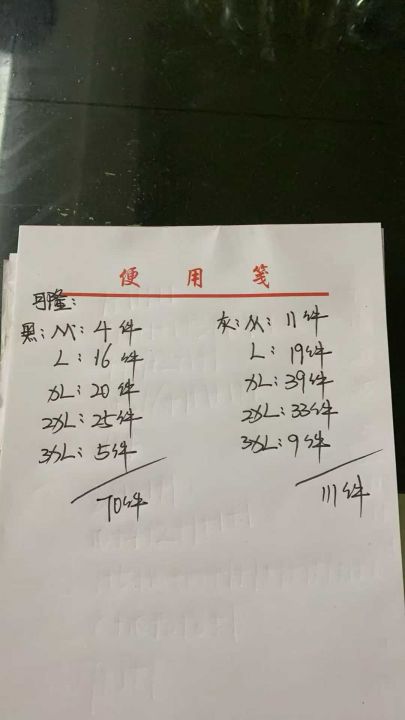 便用笺
月隆：
黑：M：4件
L：16件
XL：20件
2XL：25件
3XL：5件
70件
灰：M：11件
L：19件
XL：39件
2XL：33件
3XL：9件
111件